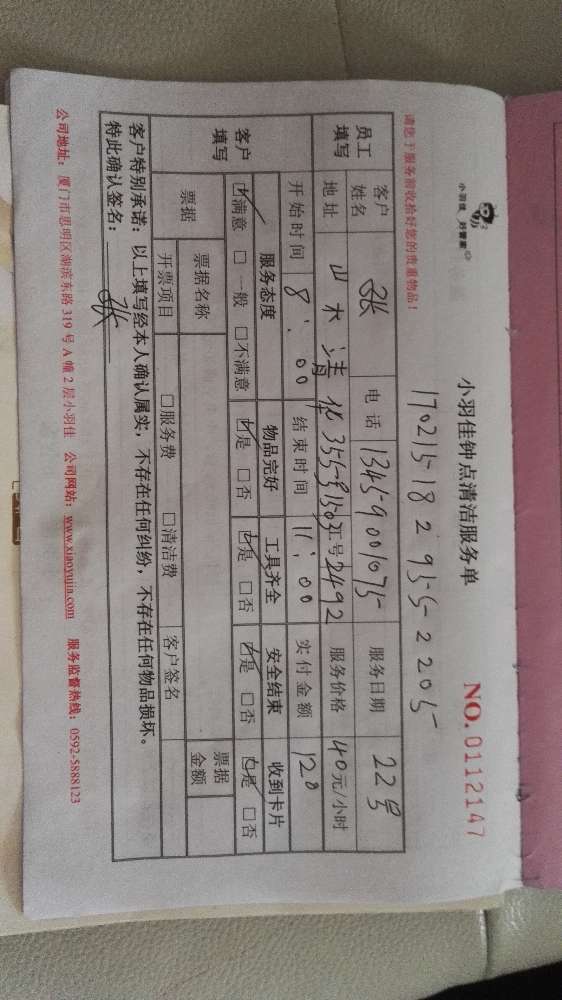 小羽佳 好管家
小羽佳钟点清洁服务单
NO. 0112147
17021518295522205
请您于服务前收拾好您的贵重物品！
员工填写 客户姓名 张 电话 13459001075 服务日期 22号
地址 山水清华 工号 2492 服务价格 40元/小时
开始时间 8:00 结束时间 11:00 实付金额 120
客户填写 服务态度 物品完好 工具齐全 安全结束 收到卡片
☑满意 □一般 □不满意 ☑是 □否 ☑是 □否 ☑是 □否 ☑是 □否
票据 票据名称 票据金额
开票项目 □服务费 □清洁费 客户签名
客户特别承诺：以上填写经本人确认属实，不存在任何纠纷，不存在任何物品损坏。
特此确认签名： 张
公司地址：厦门市思明区湖滨东路 319 号 A 幢 2 层小羽佳 公司网站：www.xiaoyujia.com 服务监督热线：0592-5888123